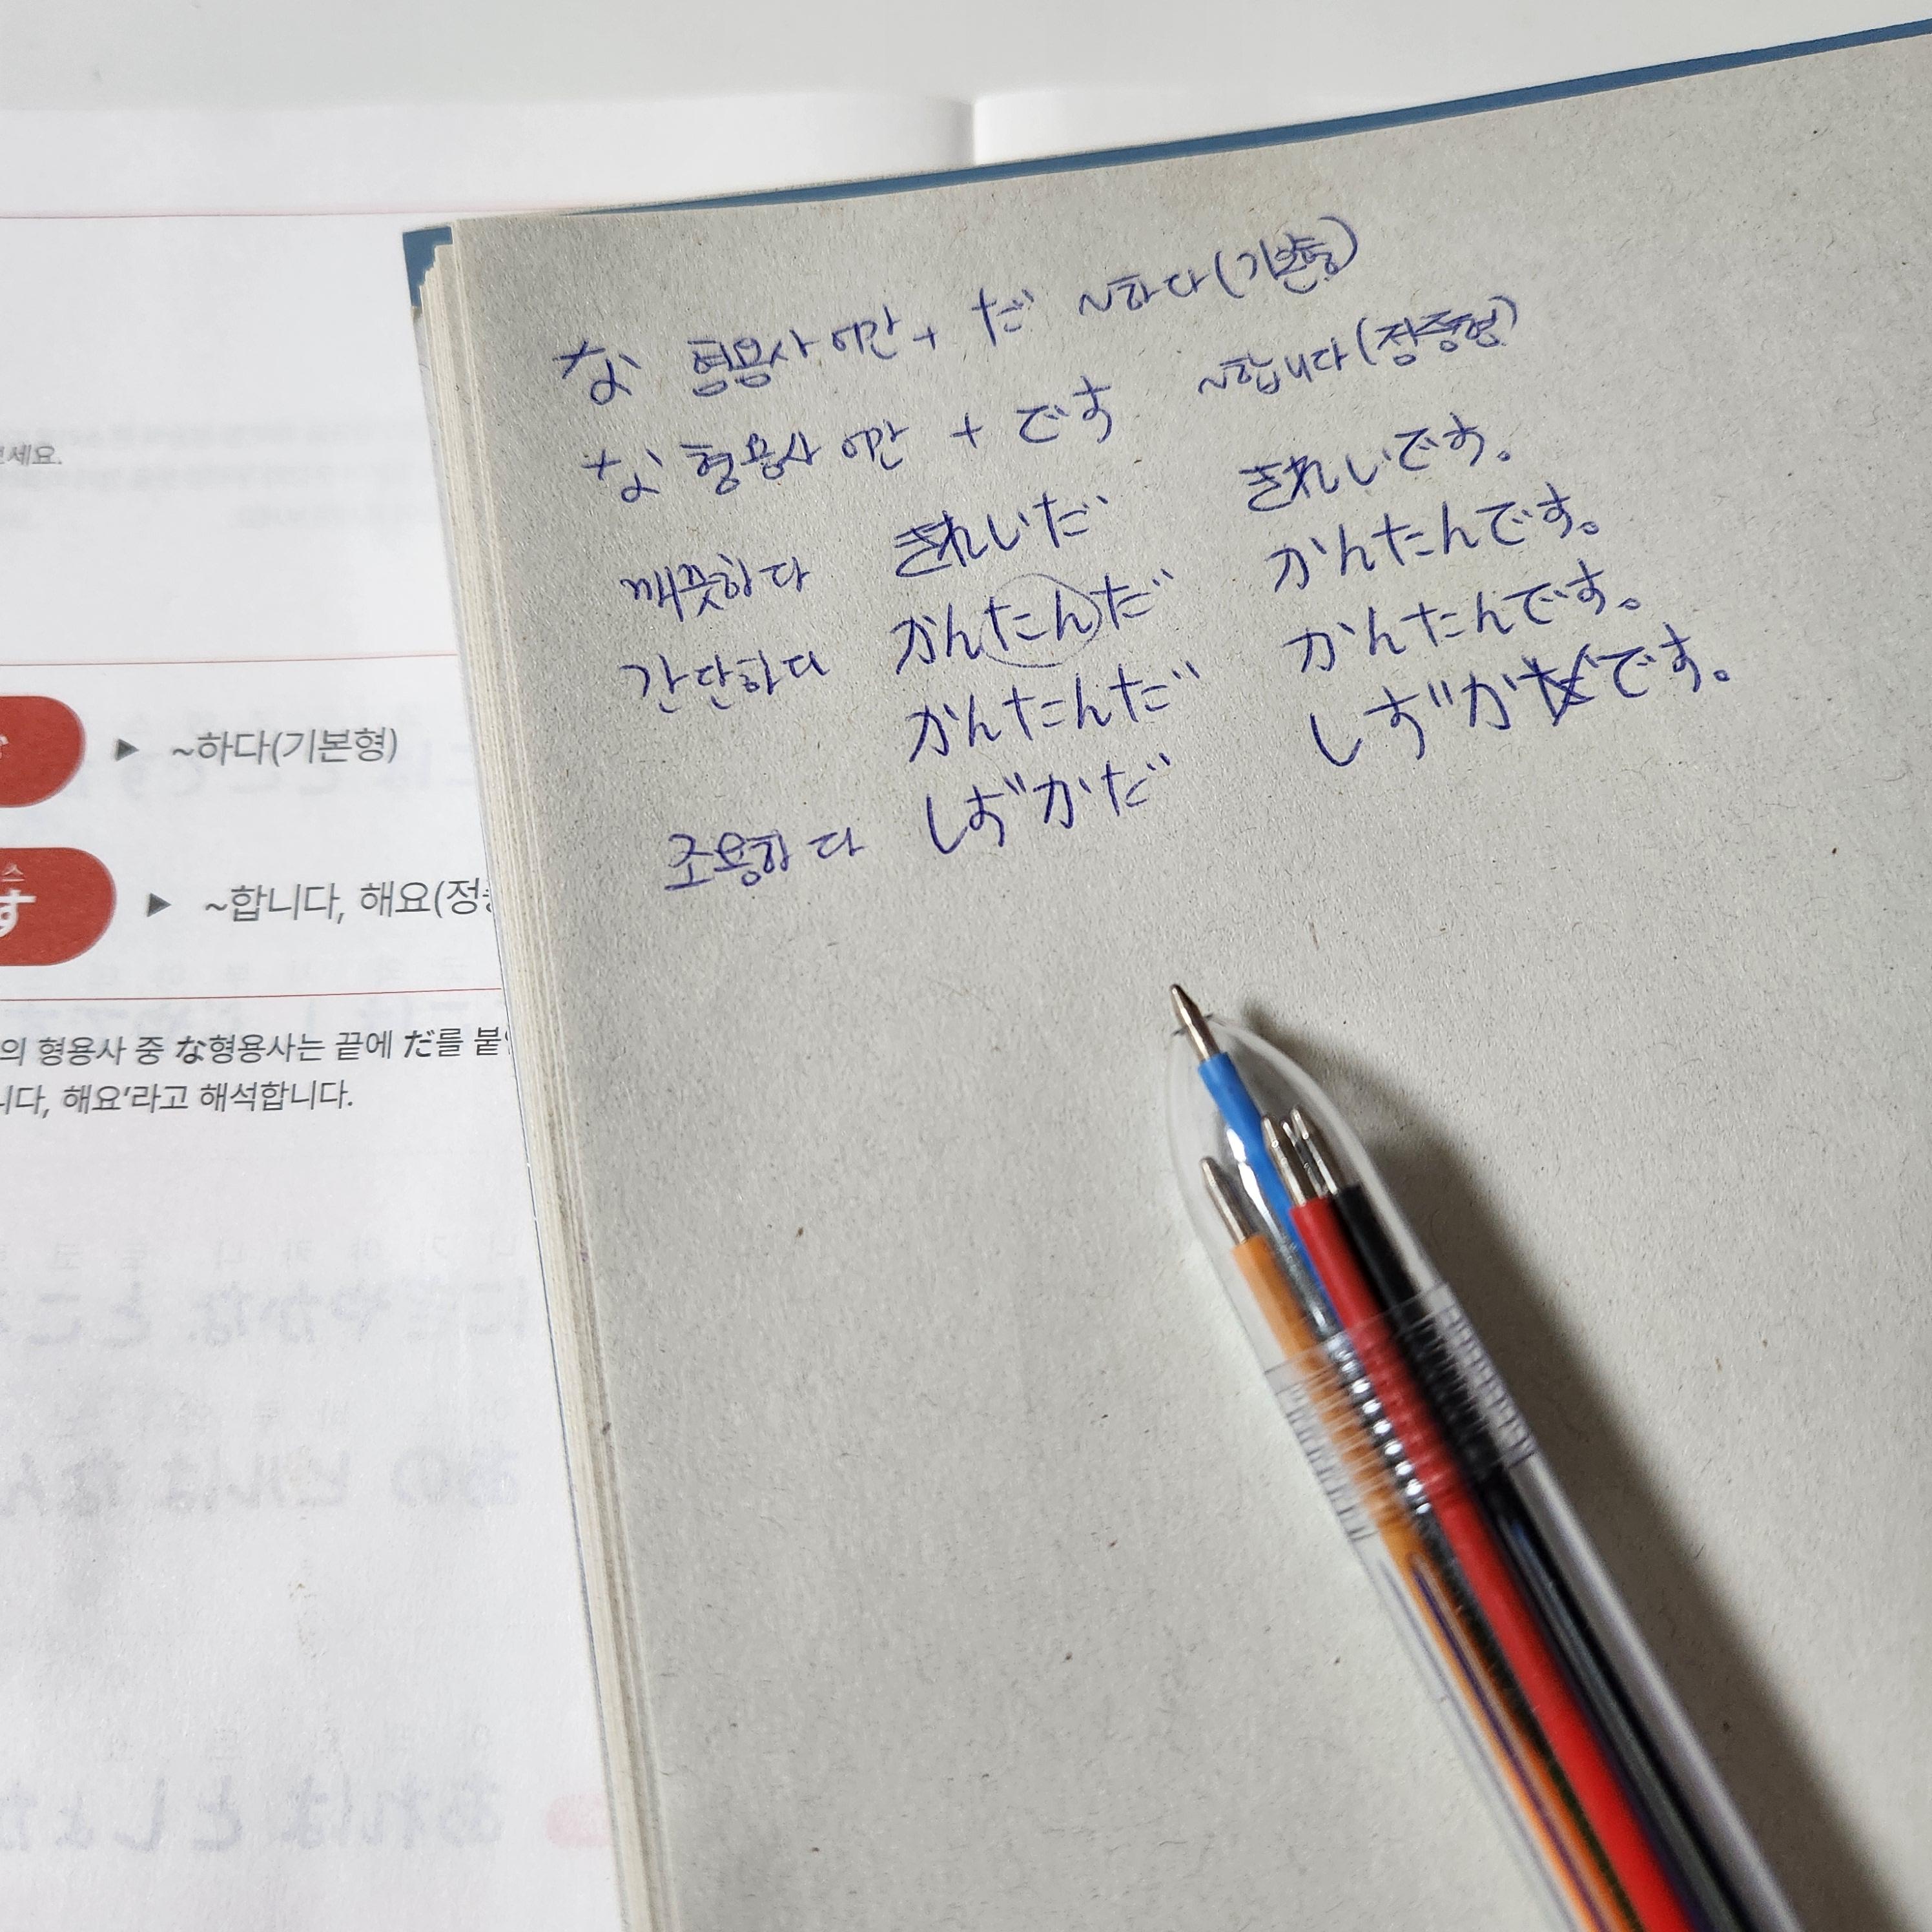 な 형용사 어간 + だ ~하다(기본형)
な 형용사 어간 + です ~합니다(정중형)
깨끗하다 きれいだ きれいです。
간단하다 かんたんだ かんたんです。
かんたんだ かんたんです。
조용하다 しずかだ しずかです。
세요.
▶ ~하다(기본형)
ス
す ▶ ~합니다, 해요(정
의 형용사 중 な형용사는 끝에 だ를 붙
니다, 해요’라고 해석합니다.